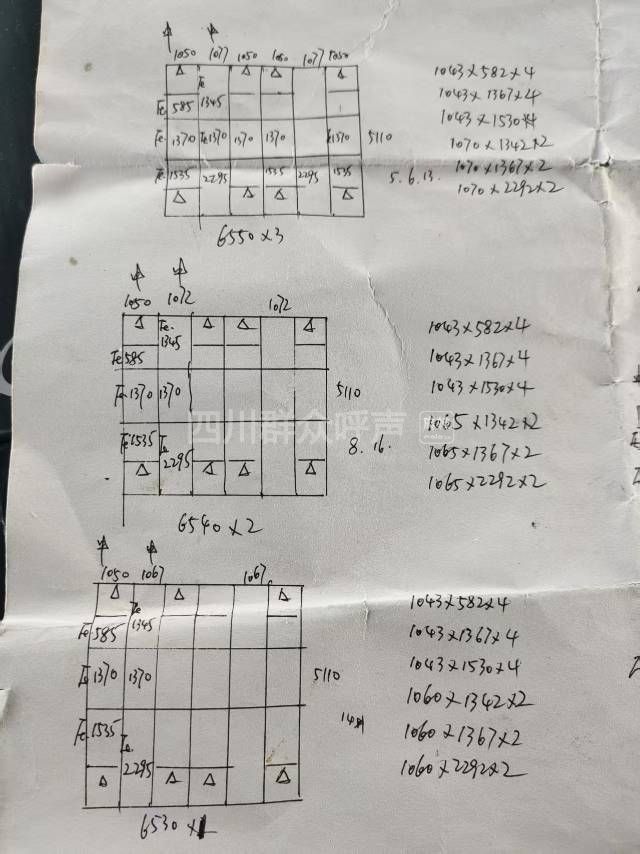 1050 1077 1050 1050 1077 1050
△ Te △ △ △
Te 585 1345
Te 1370 Te 1370 1370 1370 Te 1370 5110
Te 1535 2295 1535 2295 1535
△ △ △ △
6550×3
1043×582×4
1043×1367×4
1043×1530×4
1070×1342×2
5.6.13. 1070×1367×2
1070×2292×2
1050 1072 1072
△ Te. △ △ △
1345
Te 585
Te 1370 1370 5110
Te 1535 Te 2295
△ △ △ △
6540×2
8.16.
1043×582×4
1043×1367×4
1043×1530×4
1065×1342×2
1065×1367×2
1065×2292×2
四川群众呼声
1050 1067 1067
△ Te △ △
Te 585 1345
Te 1370 1370 5110
Te 1535 Te 2295
△ △ △ △
6530×1
1043×582×4
1043×1367×4
1043×1530×4
1060×1342×2
1060×1367×2
1060×2292×2